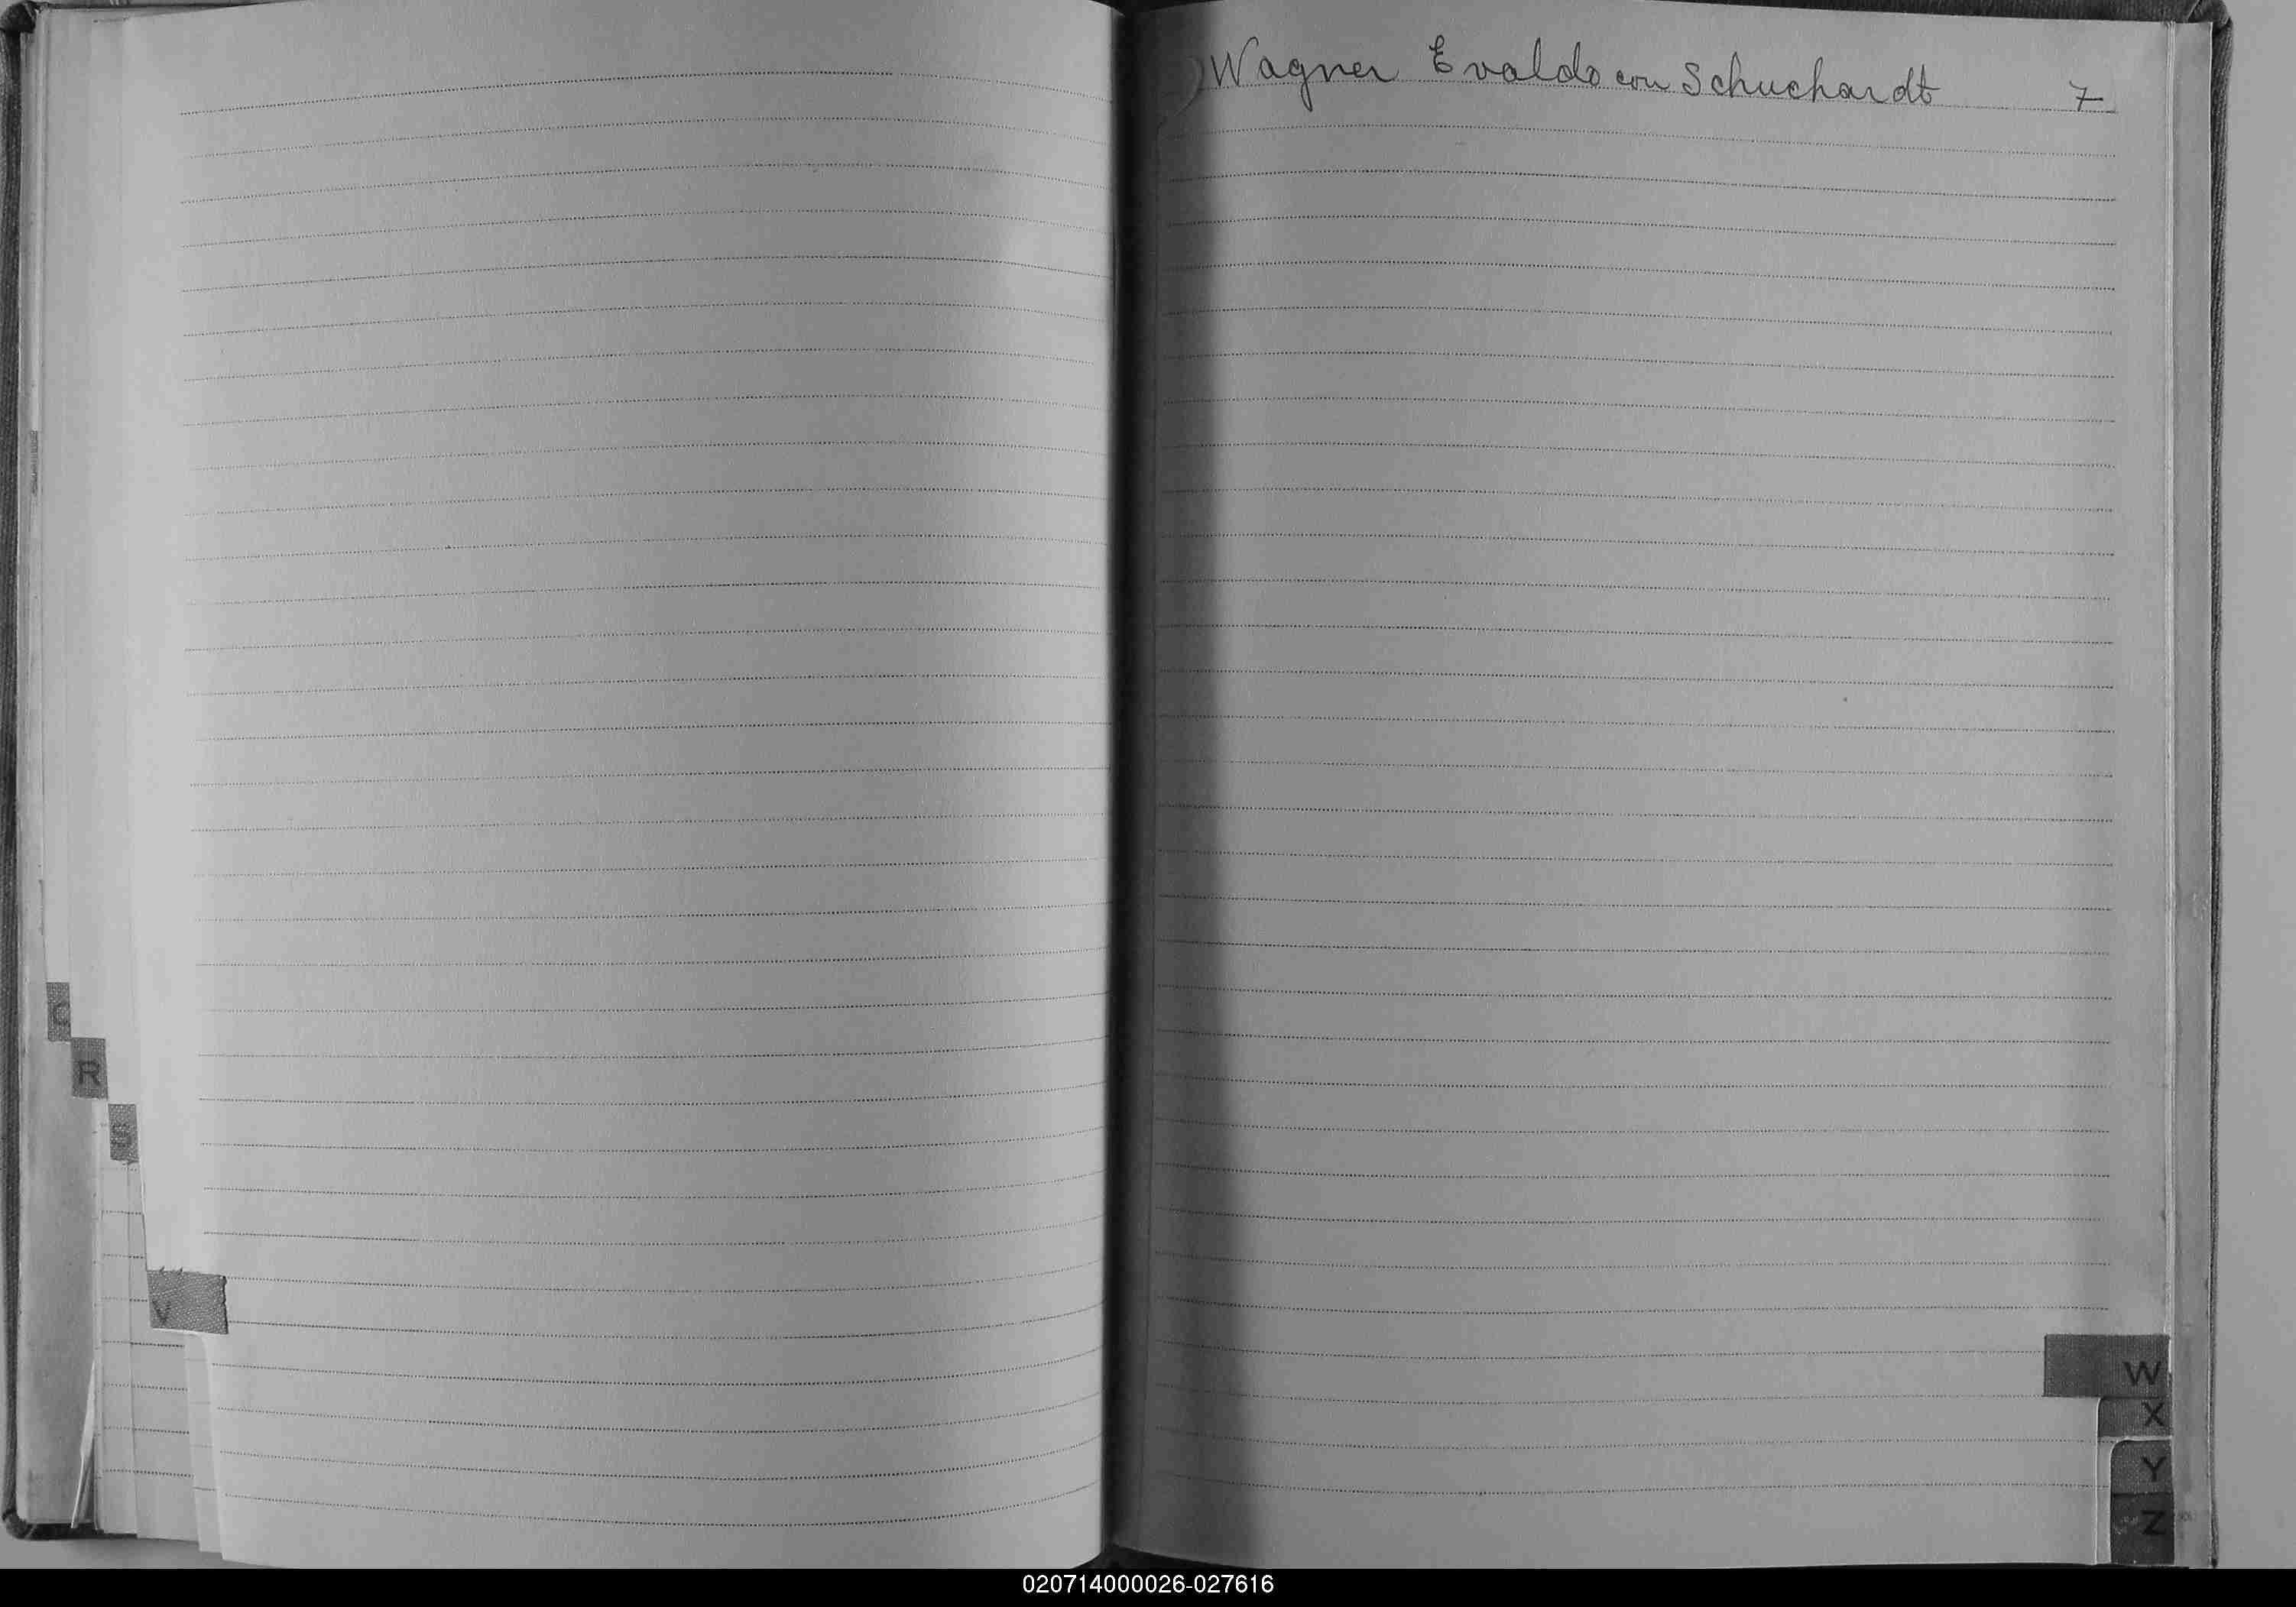 Wagner Evaldo con Schuchardt 7
R
S
V
W
X
Y
Z
020714000026-027616